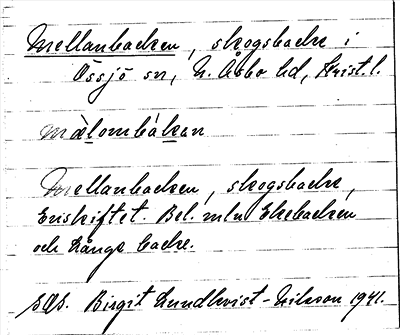 Mellanbacken, skogsbacke i
Össjö sn, N. Åsbo hd, Krist. l.
mæ̀lombákan
Mellanbacken, skogsbacke,
Enskiftet. Bel. mln Ekebacken
och Långe backe.
Birgit Lundkvist-Nilsson 1941.